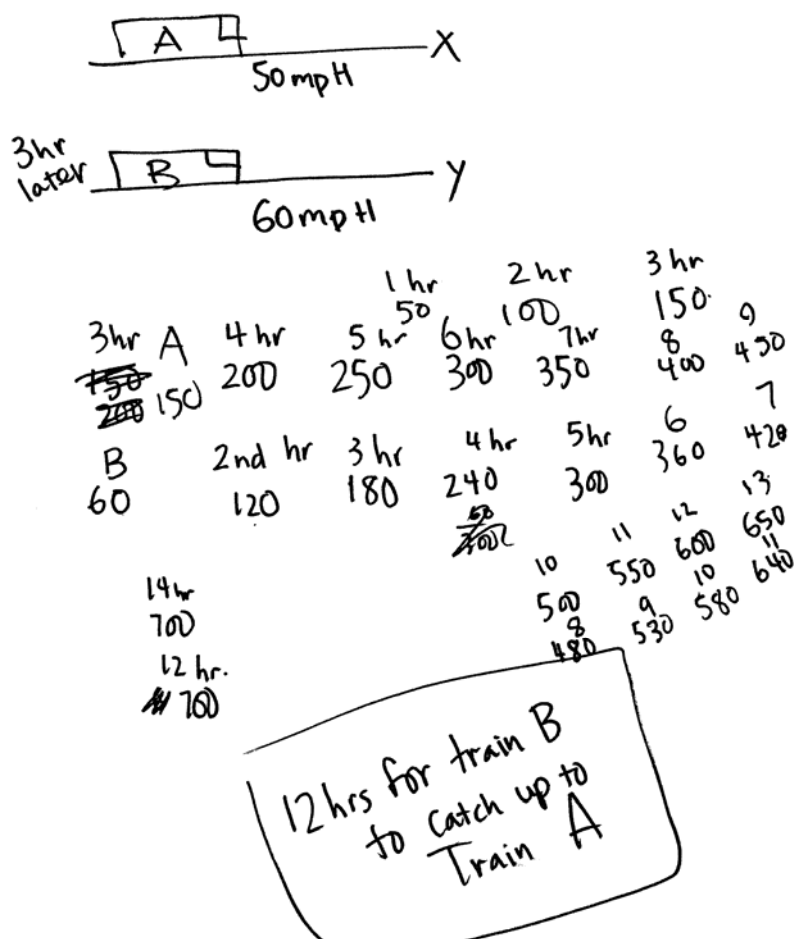 A X
50mpH
3hr
later B Y
60mpH
1 hr 2 hr 3 hr
50 100 150
3hr A 4 hr 5 hr 6hr 7hr 8 9
150 200 250 300 350 400 450
200 150
B 2nd hr 3 hr 4 hr 5hr 6 7
60 120 180 240 300 360 420
10 11 12 13
500 550 600 650
8 9 10 11
480 530 580 640
14hr
700
12 hr.
700
12 hrs for train B
to catch up to
Train A